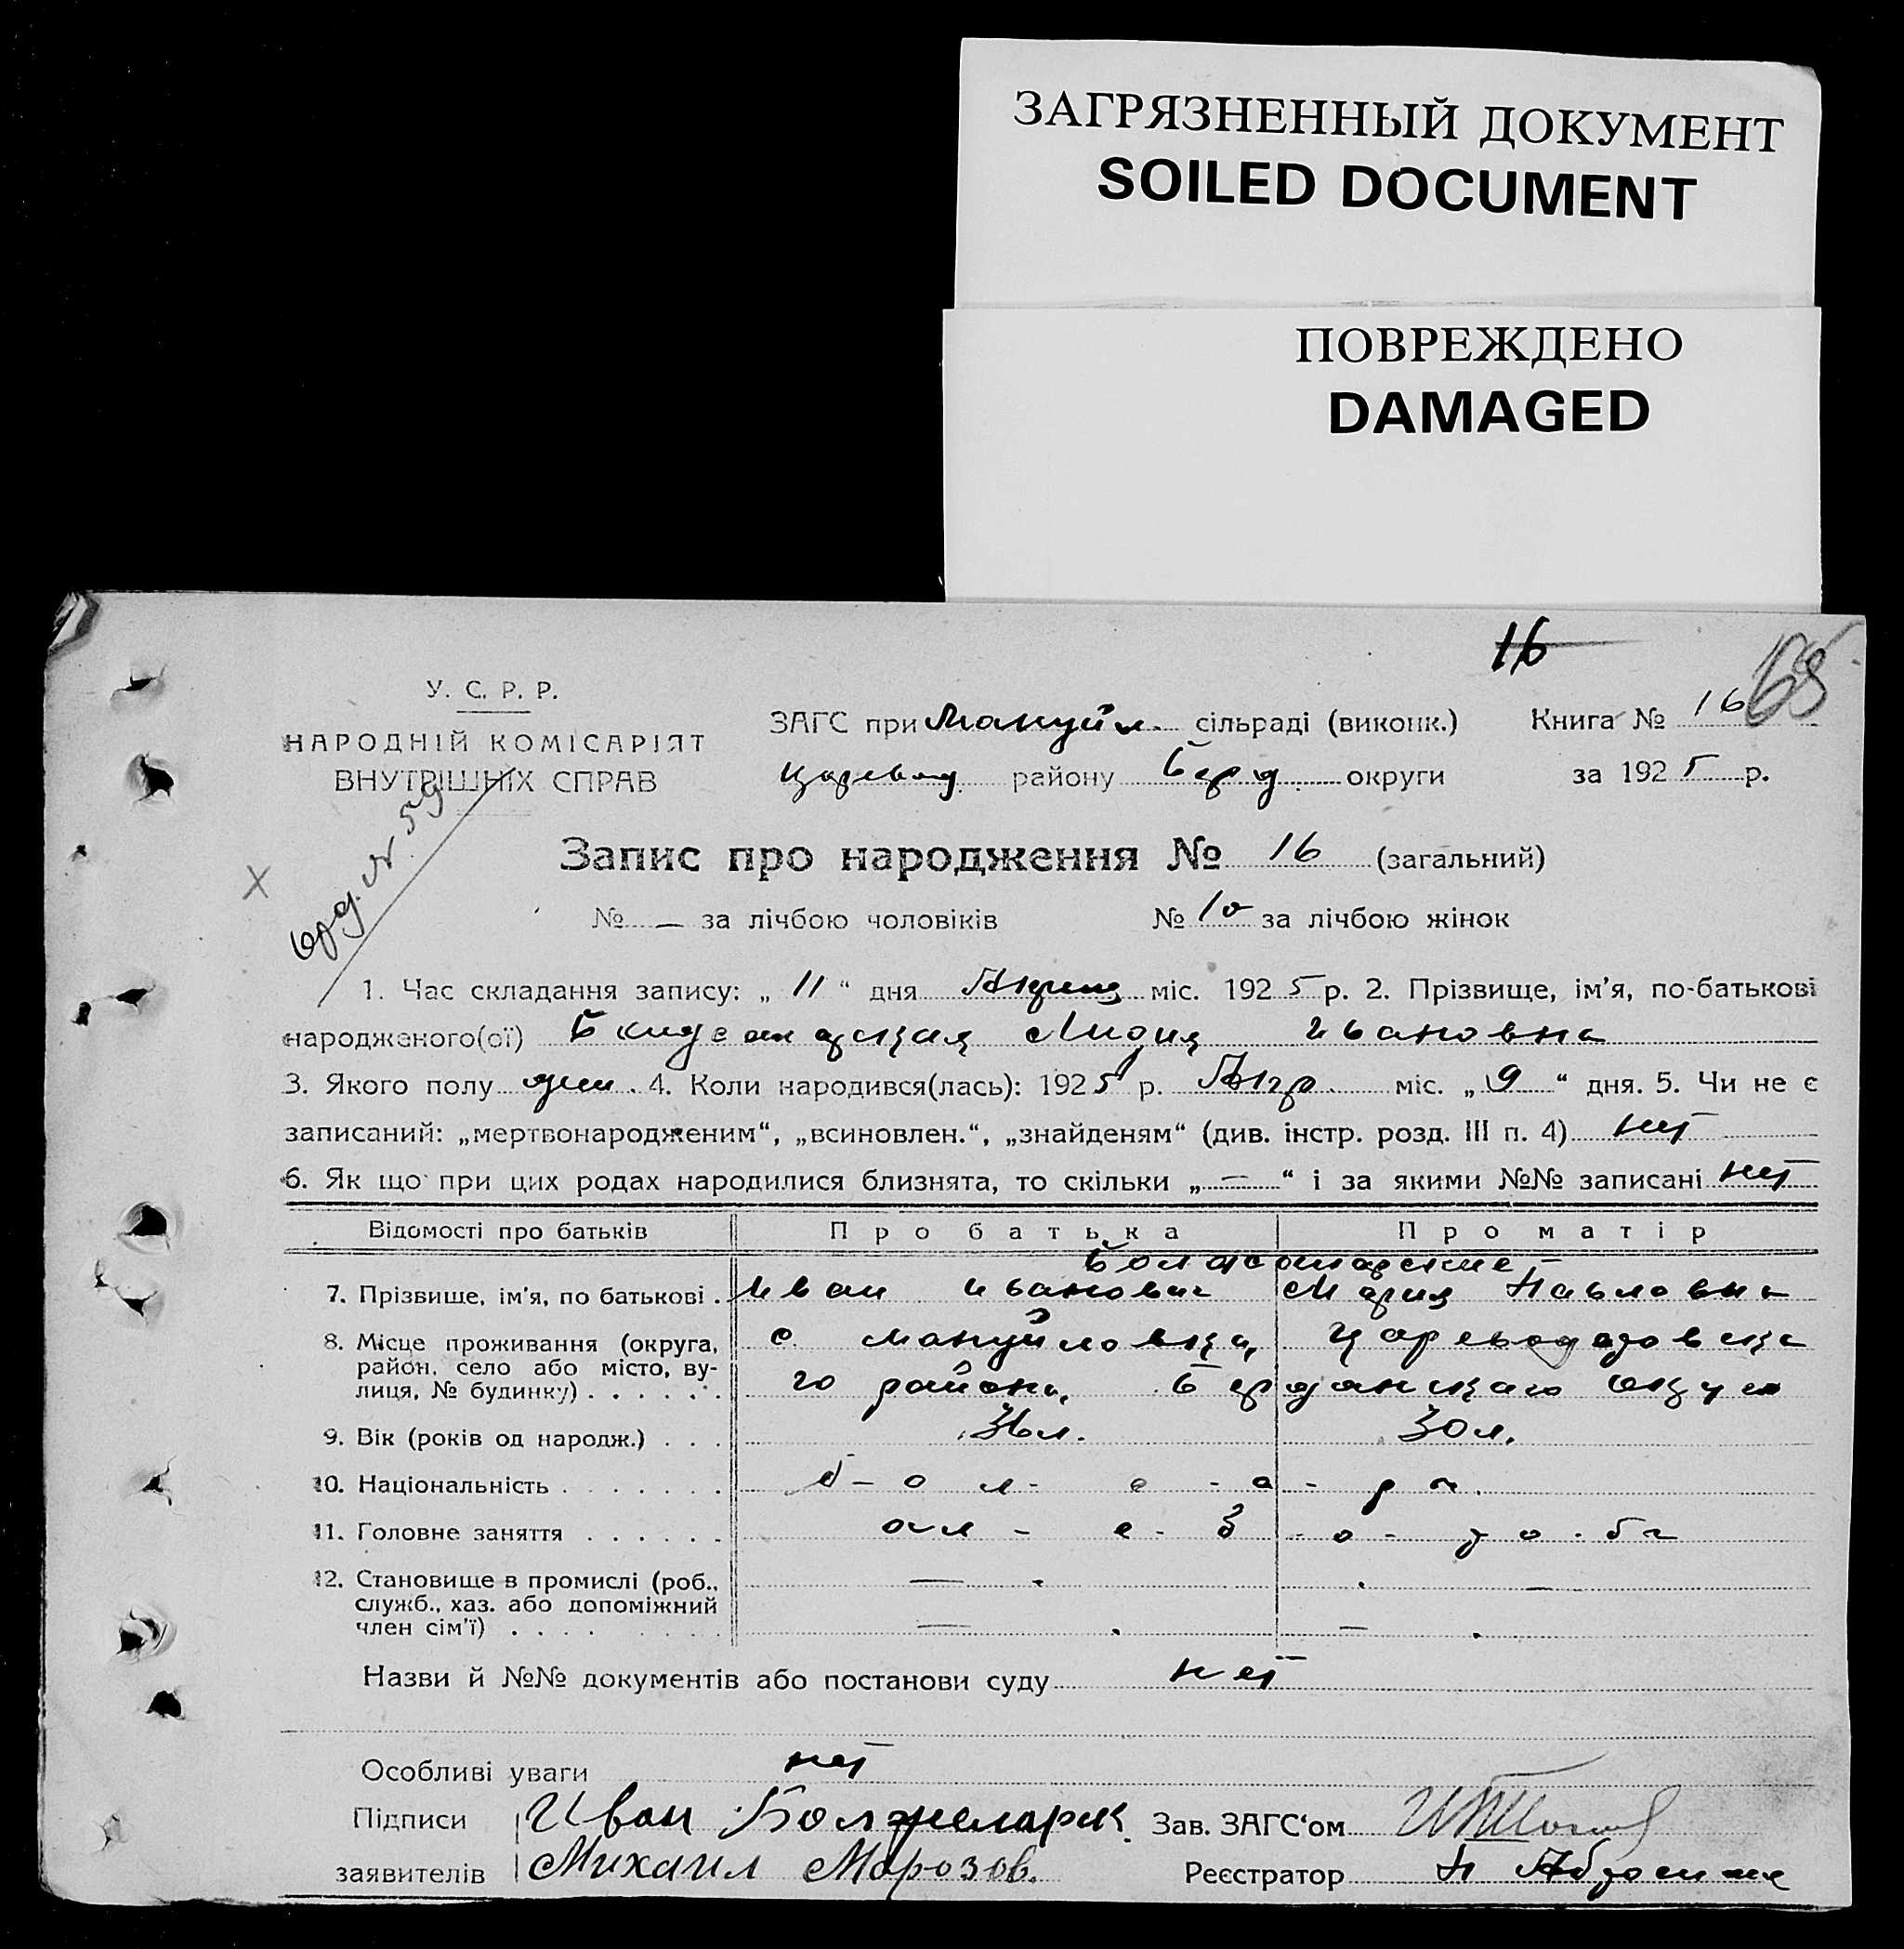 ЗАГРЯЗНЕННЫЙ ДОКУМЕНТ
SOILED DOCUMENT
ПОВРЕЖДЕНО
DAMAGED
16
У. С. Р. Р.
НАРОДНІЙ КОМІСАРІЯТ
ВНУТРІШНІХ СПРАВ
ЗАГС при Мануйл. сільраді (виконк.) Книга № 16
Царевод. району Берд. округи за 1925 р.
Запис про народження № 16 (загальний)
№ — за лічбою чоловіків № 10 за лічбою жінок
1. Час складання запису: „ 11 “ дня міс. 1925 р. 2. Прізвище, ім'я, по-батькові
народженого(ої) Лидия Ивановна
3. Якого полу жен. 4. Коли народився(лась): 1925 р. міс. „ 9 “ дня. 5. Чи не є
записаний: „мертвонародженим“, „всиновлен.“, „знайденям“ (див. інстр. розд. III п. 4) нет
6. Як що при цих родах народилися близнята, то скільки „ — “ і за якими №№ записані нет
Відомості про батьків Про батька Про матір
7. Прізвище, ім'я, по батькові . Иван Иванович Мария Павловна
8. Місце проживання (округа, с. Мануйловка, Цареводаровска
район, село або місто, ву-
лиця, № будинку) . . . . . . го района, Бердянскаго округа
9. Вік (років од народж.) . . . 36 л. 30 л.
10. Національність . . . . . . . б - о л - г - а - р е.
11. Головне заняття . . . . . . хл - е - б - о - р о - бы
12. Становище в промислі (роб., — . . —
служб., хаз. або допоміжний
член сім'ї) . . . . — . — .
Назви й №№ документів або постанови суду нет
Особливі уваги нет
Підписи Иван Зав. ЗАГС'ом
заявителів Михаил Морозов. Реєстратор